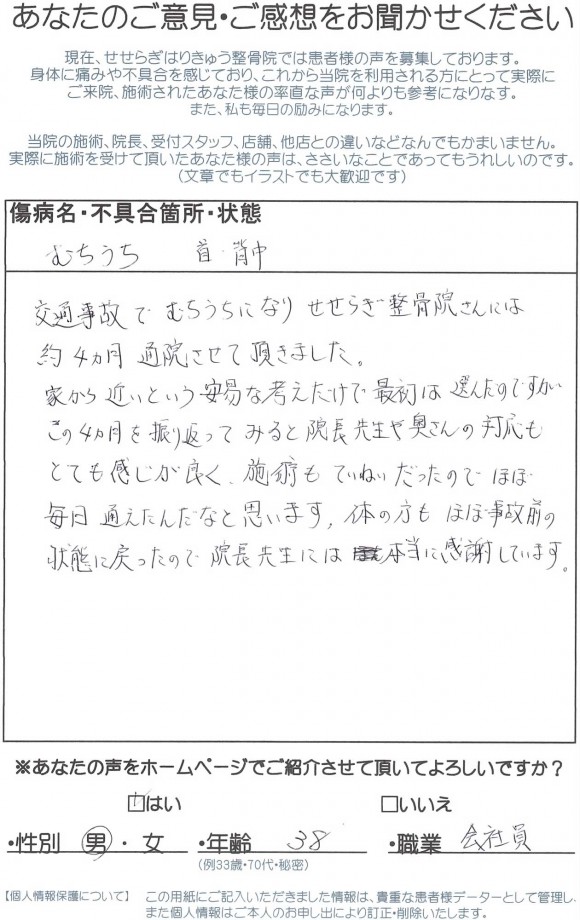 あなたのご意見・ご感想をお聞かせください
現在、せせらぎはりきゅう整骨院では患者様の声を募集しております。
身体に痛みや不具合を感じており、これから当院を利用される方にとって実際に
ご来院、施術されたあなた様の率直な声が何よりも参考になりなす。
また、私も毎日の励みになります。
当院の施術、院長、受付スタッフ、店舗、他店との違いなどなんでもかまいません。
実際に施術を受けて頂いたあなた様の声は、ささいなことであってもうれしいのです。
(文章でもイラストでも大歓迎です)
傷病名・不具合箇所・状態
むちうち 首・背中
交通事故で むちうちになり せせらぎ整骨院さんには
約4カ月 通院させて頂きました。
家から近いという安易な考えだけで最初は選んだのですが
この4カ月を振り返ってみると院長先生や奥さんの対応も
とても感じが良く、施術もていねいだったのでほぼ
毎日通えたんだなと思います。体の方もほぼ事故前の
状態に戻ったので院長先生には本当に感謝しています。
※あなたの声をホームページでご紹介させて頂いてよろしいですか?
□はい □いいえ
・性別 男・女 ・年齢 38 ・職業 会社員
(例33歳・70代・秘密)
【個人情報保護について】 この用紙にご記入いただきました情報は、貴重な患者様データーとして管理し、
また個人情報はご本人のお申し出により訂正・削除いたします。